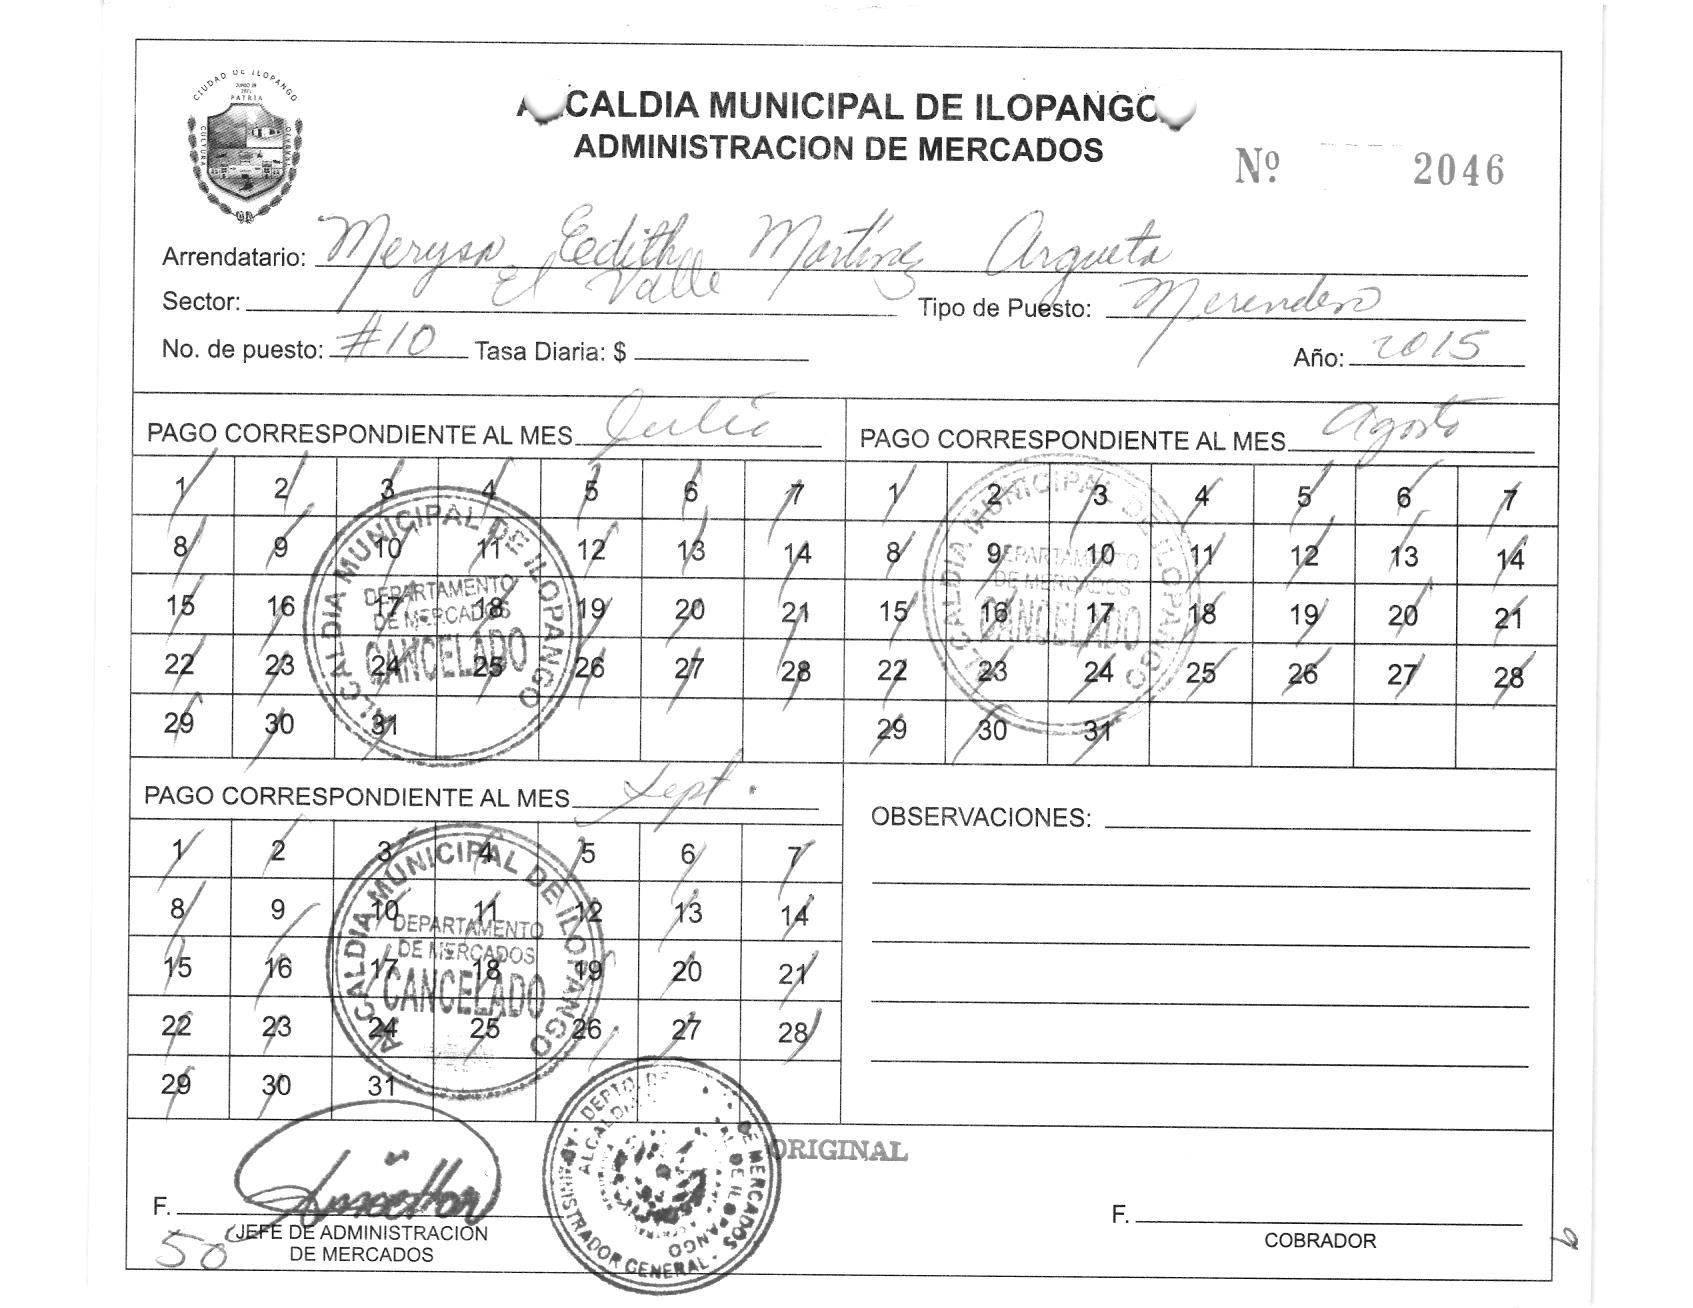 CIUDAD DE ILOPANGO
PATRIA
CULTURA
ALCALDIA MUNICIPAL DE ILOPANGO
ADMINISTRACION DE MERCADOS
Nº 2046
Arrendatario: Merysa Eedith Martínez Argueta
Sector: El Valle Tipo de Puesto: Merendero
No. de puesto: #10 Tasa Diaria: $ Año: 2015
PAGO CORRESPONDIENTE AL MES Julio
1 2 3 4 5 6 7
8 9 10 11 12 13 14
15 16 17 18 19 20 21
22 23 24 25 26 27 28
29 30 31
ALCALDIA MUNICIPAL DE ILOPANGO
DEPARTAMENTO
DE MERCADOS
CANCELADO
PAGO CORRESPONDIENTE AL MES Agosto
1 2 3 4 5 6 7
8 9 10 11 12 13 14
15 16 17 18 19 20 21
22 23 24 25 26 27 28
29 30 31
ALCALDIA MUNICIPAL DE ILOPANGO
DEPARTAMENTO
DE MERCADOS
CANCELADO
PAGO CORRESPONDIENTE AL MES Sept.
1 2 3 4 5 6 7
8 9 10 11 12 13 14
15 16 17 18 19 20 21
22 23 24 25 26 27 28
29 30 31
ALCALDIA MUNICIPAL DE ILOPANGO
DEPARTAMENTO
DE MERCADOS
CANCELADO
OBSERVACIONES:
ORIGINAL
F.
JEFE DE ADMINISTRACION
DE MERCADOS
50
ADMINISTRADOR GENERAL
DEPTO. DE
DE MERCADOS
DE ILOPANGO
F.
COBRADOR
9